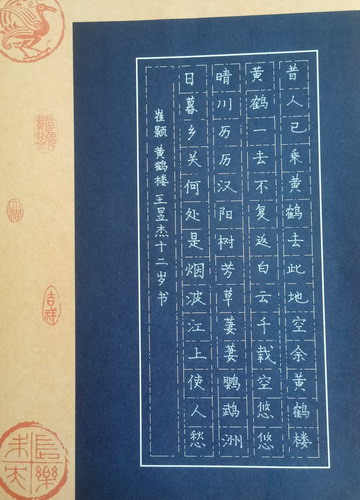 昔人已乘黄鹤去此地空余黄鹤楼
黄鹤一去不复返白云千载空悠悠
晴川历历汉阳树芳草萋萋鹦鹉洲
日暮乡关何处是烟波江上使人愁
崔颢黄鹤楼 王昱杰十二岁书
吉祥
長樂未央